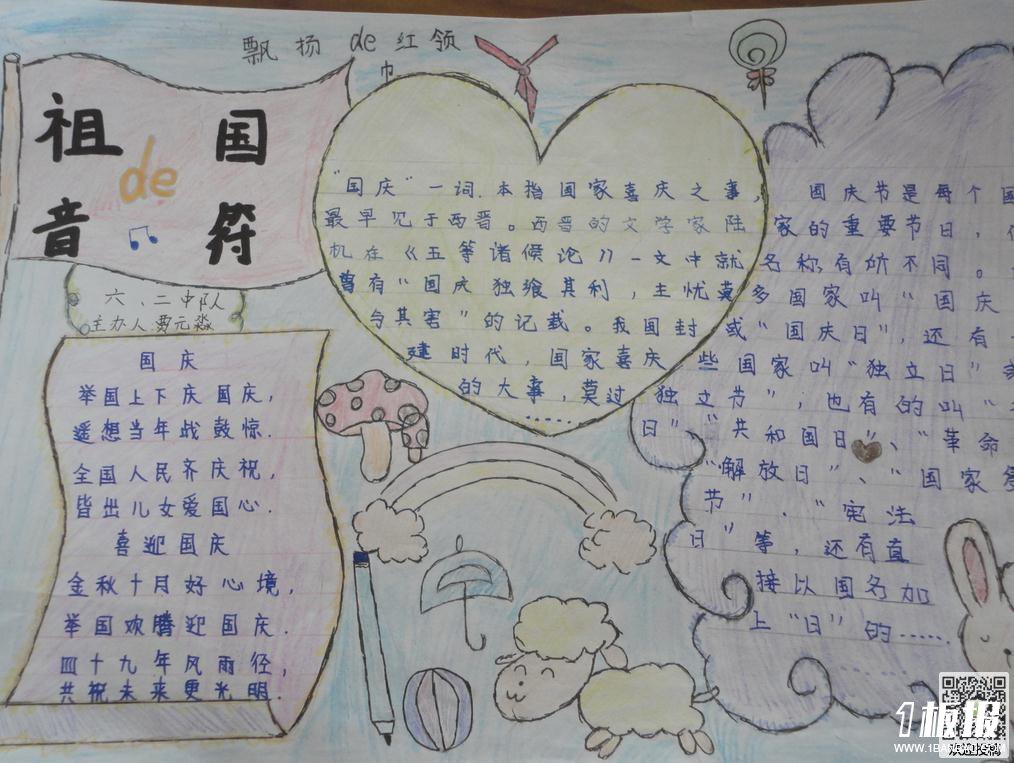 飘扬de红领
巾
祖国
de
音符
六、二中队
主办人贾元淼
国庆
举国上下庆国庆，
遥想当年战鼓惊.
全国人民齐庆祝，
皆出儿女爱国心.
喜迎国庆
金秋十月好心境，
举国欢腾迎国庆.
四十九年风雨径，
共祝未来更光明.
"国庆"一词.本指国家喜庆之事，
最早见于西晋。西晋的文学家陆
机在《五等诸候论》一文中就
曾有"国庆独飨其利，主忧莫
与其害"的记载。我国封
建时代，国家喜庆
的大事，莫过
……
国庆节是每个
家的重要节日，
名称有所不同。
多国家叫"国庆
或"国庆日"，还有
些国家叫"独立日"
独立节"；也有的叫"
日"、"共和国日"、"革命
"解放日"、"国家
节"、"宪法
日"等，还有直
接以国名加
上"日"的……
1板报
WWW.1BANBAO.COM
欢迎投稿